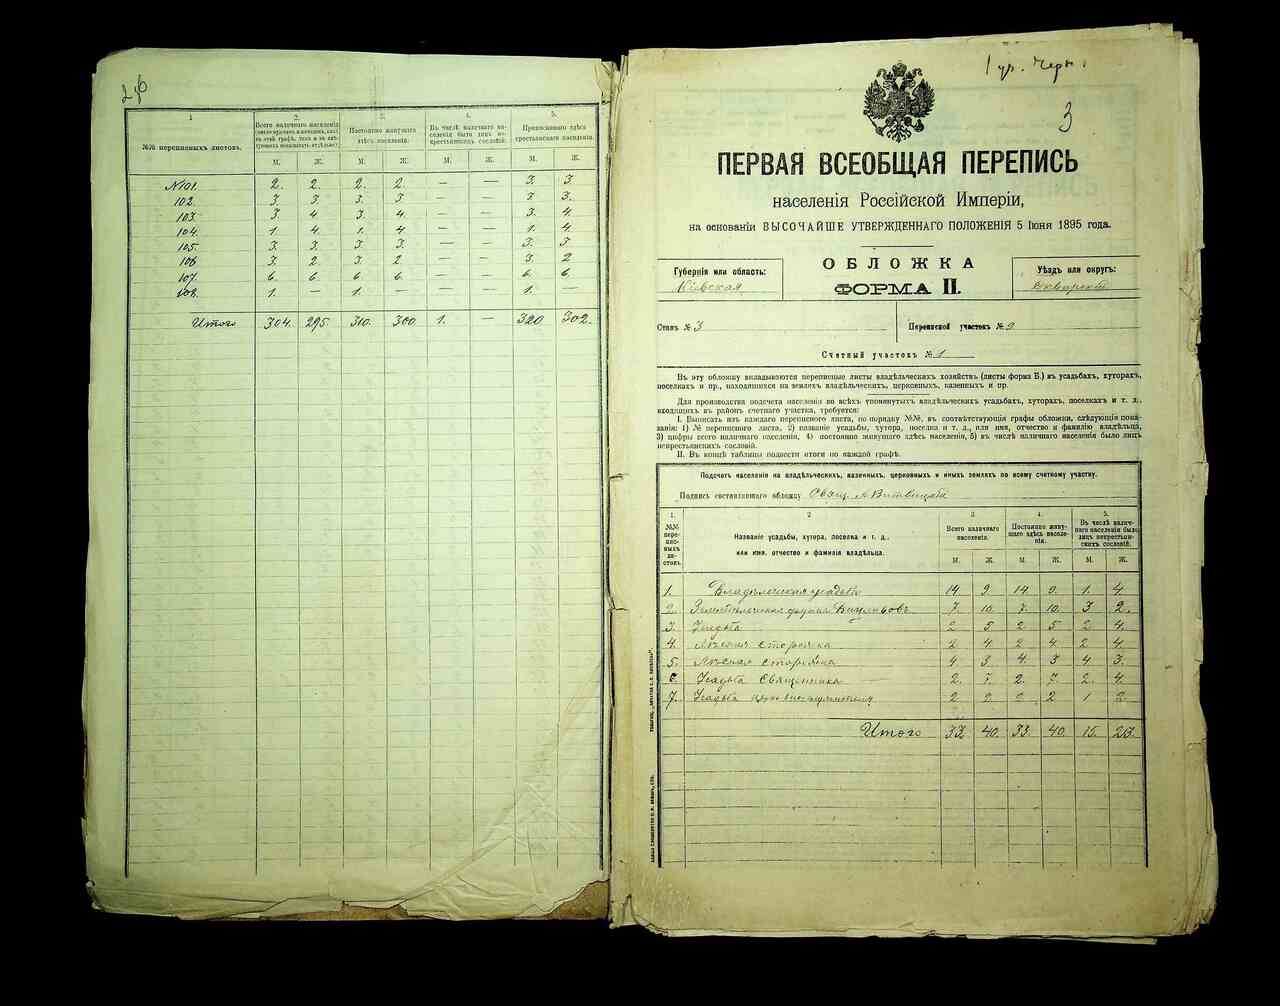 1
2.
3.
4.
5.
№№ переписныхъ листовъ.
Всего наличнаго населенія
Постоянно живущаго здѣсь населенія.
Въ числѣ наличнаго населенія было лицъ некрестьянскихъ сословій.
Приписаннаго здѣсь крестьянскаго населенія.
М. Ж. М. Ж. М. Ж. М. Ж.
№101. 2. 2. 2. 2. — — 3. 3
102. 3. 3. 3. 3 — — 3 3.
103. 3 4. 3. 4. — — 3. 4.
104. 1. 4. 1. 4 — — 1. 4.
105. 3. 3. 3. 3. — — 3. 3
106 3. 2. 3. 2 — — 3. 2
107. 6. 6. 6 6. — — 6. 6
108. 1. — 1. — — — 1. —
Итого 304. 295. 310. 300. 1. — 320 302.
3
ПЕРВАЯ ВСЕОБЩАЯ ПЕРЕПИСЬ
населенія Россійской Имперіи,
на основаніи ВЫСОЧАЙШЕ УТВЕРЖДЕННАГО ПОЛОЖЕНІЯ 5 Іюня 1895 года.
ОБЛОЖКА
ФОРМА II.
Губернія или область:
Кіевская
Уѣздъ или округъ:
Сквирскій
Станъ № 3
Переписной участокъ № 9
Счетный участокъ № 1
Въ эту обложку вкладываются переписные листы владѣльческихъ хозяйствъ (листы форма Б.) въ усадьбахъ, хуторахъ,
поселкахъ и пр., находящихся на земляхъ владѣльческихъ, церковныхъ, казенныхъ и пр.
Для производства подсчета населенія во всѣхъ упомянутыхъ владѣльческихъ усадьбахъ, хуторахъ, поселкахъ и т. д.,
входящихъ въ районъ счетнаго участка, требуется:
I. Выписать изъ каждаго переписного листа, по порядку №№, въ соотвѣтствующія графы обложки, слѣдующія пока-
занія: 1) № переписного листа, 2) названіе усадьбы, хутора, поселка и т. д., или имя, отчество и фамилію владѣльца,
3) цифры всего наличнаго населенія, 4) постоянно живущаго здѣсь населенія, 5) въ числѣ наличнаго населенія было лицъ
некрестьянскихъ сословій.
II. Въ концѣ таблицы подвести итоги по каждой графѣ.
Подсчетъ населенія на владѣльческихъ, казенныхъ, церковныхъ и иныхъ земляхъ по всему счетному участку.
Подпись составлявшаго обложку Свящ.
1. 2 3. 4. 5.
№№ переписныхъ листовъ.
Названіе усадьбы, хутора, поселка и т. д.,
или имя, отчество и фамилія владѣльца.
Всего наличнаго населенія.
Постоянно живущаго здѣсь населенія.
Въ числѣ наличнаго населенія было лицъ некрестьянскихъ сословій.
М. Ж. М. Ж. М. Ж.
1. Владѣльческая усадьба 14 9. 14 9. 1. 4
2. 7. 10. 7. 10. 3 2.
3. Усадьба 2 5 2. 5 2 4.
4. Лѣсная сторожка 2 4 2 4. 2 4.
5. Лѣсная сторожка 4 3. 4. 3 4 3.
6. Усадьба Священника 2. 7. 2. 7. 2. 4.
7. Усадьба 2 2 2 2 1 2
Итого 33. 40. 33. 40. 15. 23.